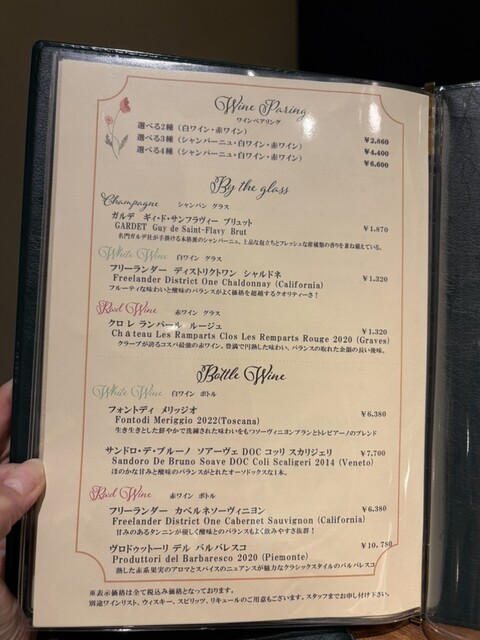 Wine Paring
ワインペアリング
選べる2種（白ワイン・赤ワイン） ¥2,860
選べる3種（シャンパーニュ・白ワイン・赤ワイン） ¥4,400
選べる4種（シャンパーニュ・白ワイン・赤ワイン） ¥6,600
By the glass
Champagne シャンパン グラス
ガルデ ギィ・ド・サンフラヴィー ブリュット
GARDET Guy de Saint-Flavy Brut ¥1,870
名門ガルデ社が手掛ける本格派のシャンパーニュ。上品な泡立ちとフレッシュな柑橘類の香りを兼ね備えている。
White Wine 白ワイン グラス
フリーランダー ディストリクトワン シャルドネ ¥1,320
Freelander District One Chaldonnay (California)
フルーティな味わいと酸味のバランスがよく価格を超越するクオリティーさ！
Red Wine 赤ワイン グラス
クロ レ ランパール ルージュ ¥1,320
Château Les Ramparts Clos Les Remparts Rouge 2020 (Graves)
グラーブが誇るコスパ最強の赤ワイン。豊満で円熟した味わい、バランスの取れた余韻の長い後味。
Bottle Wine
White Wine 白ワイン ボトル
フォントディ メリッジオ ¥6,380
Fontodi Meriggio 2022(Toscana)
生き生きとした鮮やかで洗練された味わいをもつソーヴィニヨンブランとトレビアーノのブレンド
サンドロ・デ・ブルーノ ソアーヴェ DOC コッリ スカリジェリ ¥7,700
Sandoro De Bruno Soave DOC Coli Scaligeri 2014 (Veneto)
ほのかな甘みと酸味のバランスがとれたオーソドックスな1本。
Red Wine 赤ワイン ボトル
フリーランダー カベルネソーヴィニヨン ¥6,380
Freelander District One Cabernet Sauvignon (California)
甘みのあるタンニンが優しく酸味とのバランスもよく飲みやすさ抜群！
ヴロドゥットーリ デル バルバレスコ ¥10,780
Produttori del Barbaresco 2020 (Piemonte)
熟した赤系果実のアロマとスパイスのニュアンスが魅力なクラシックスタイルのバルバレスコ
※表示価格は全て税込み価格となっております。
別途ワインリスト、ウィスキー、スピリッツ、リキュールのご用意もございます。スタッフまでお申し付け下さい。